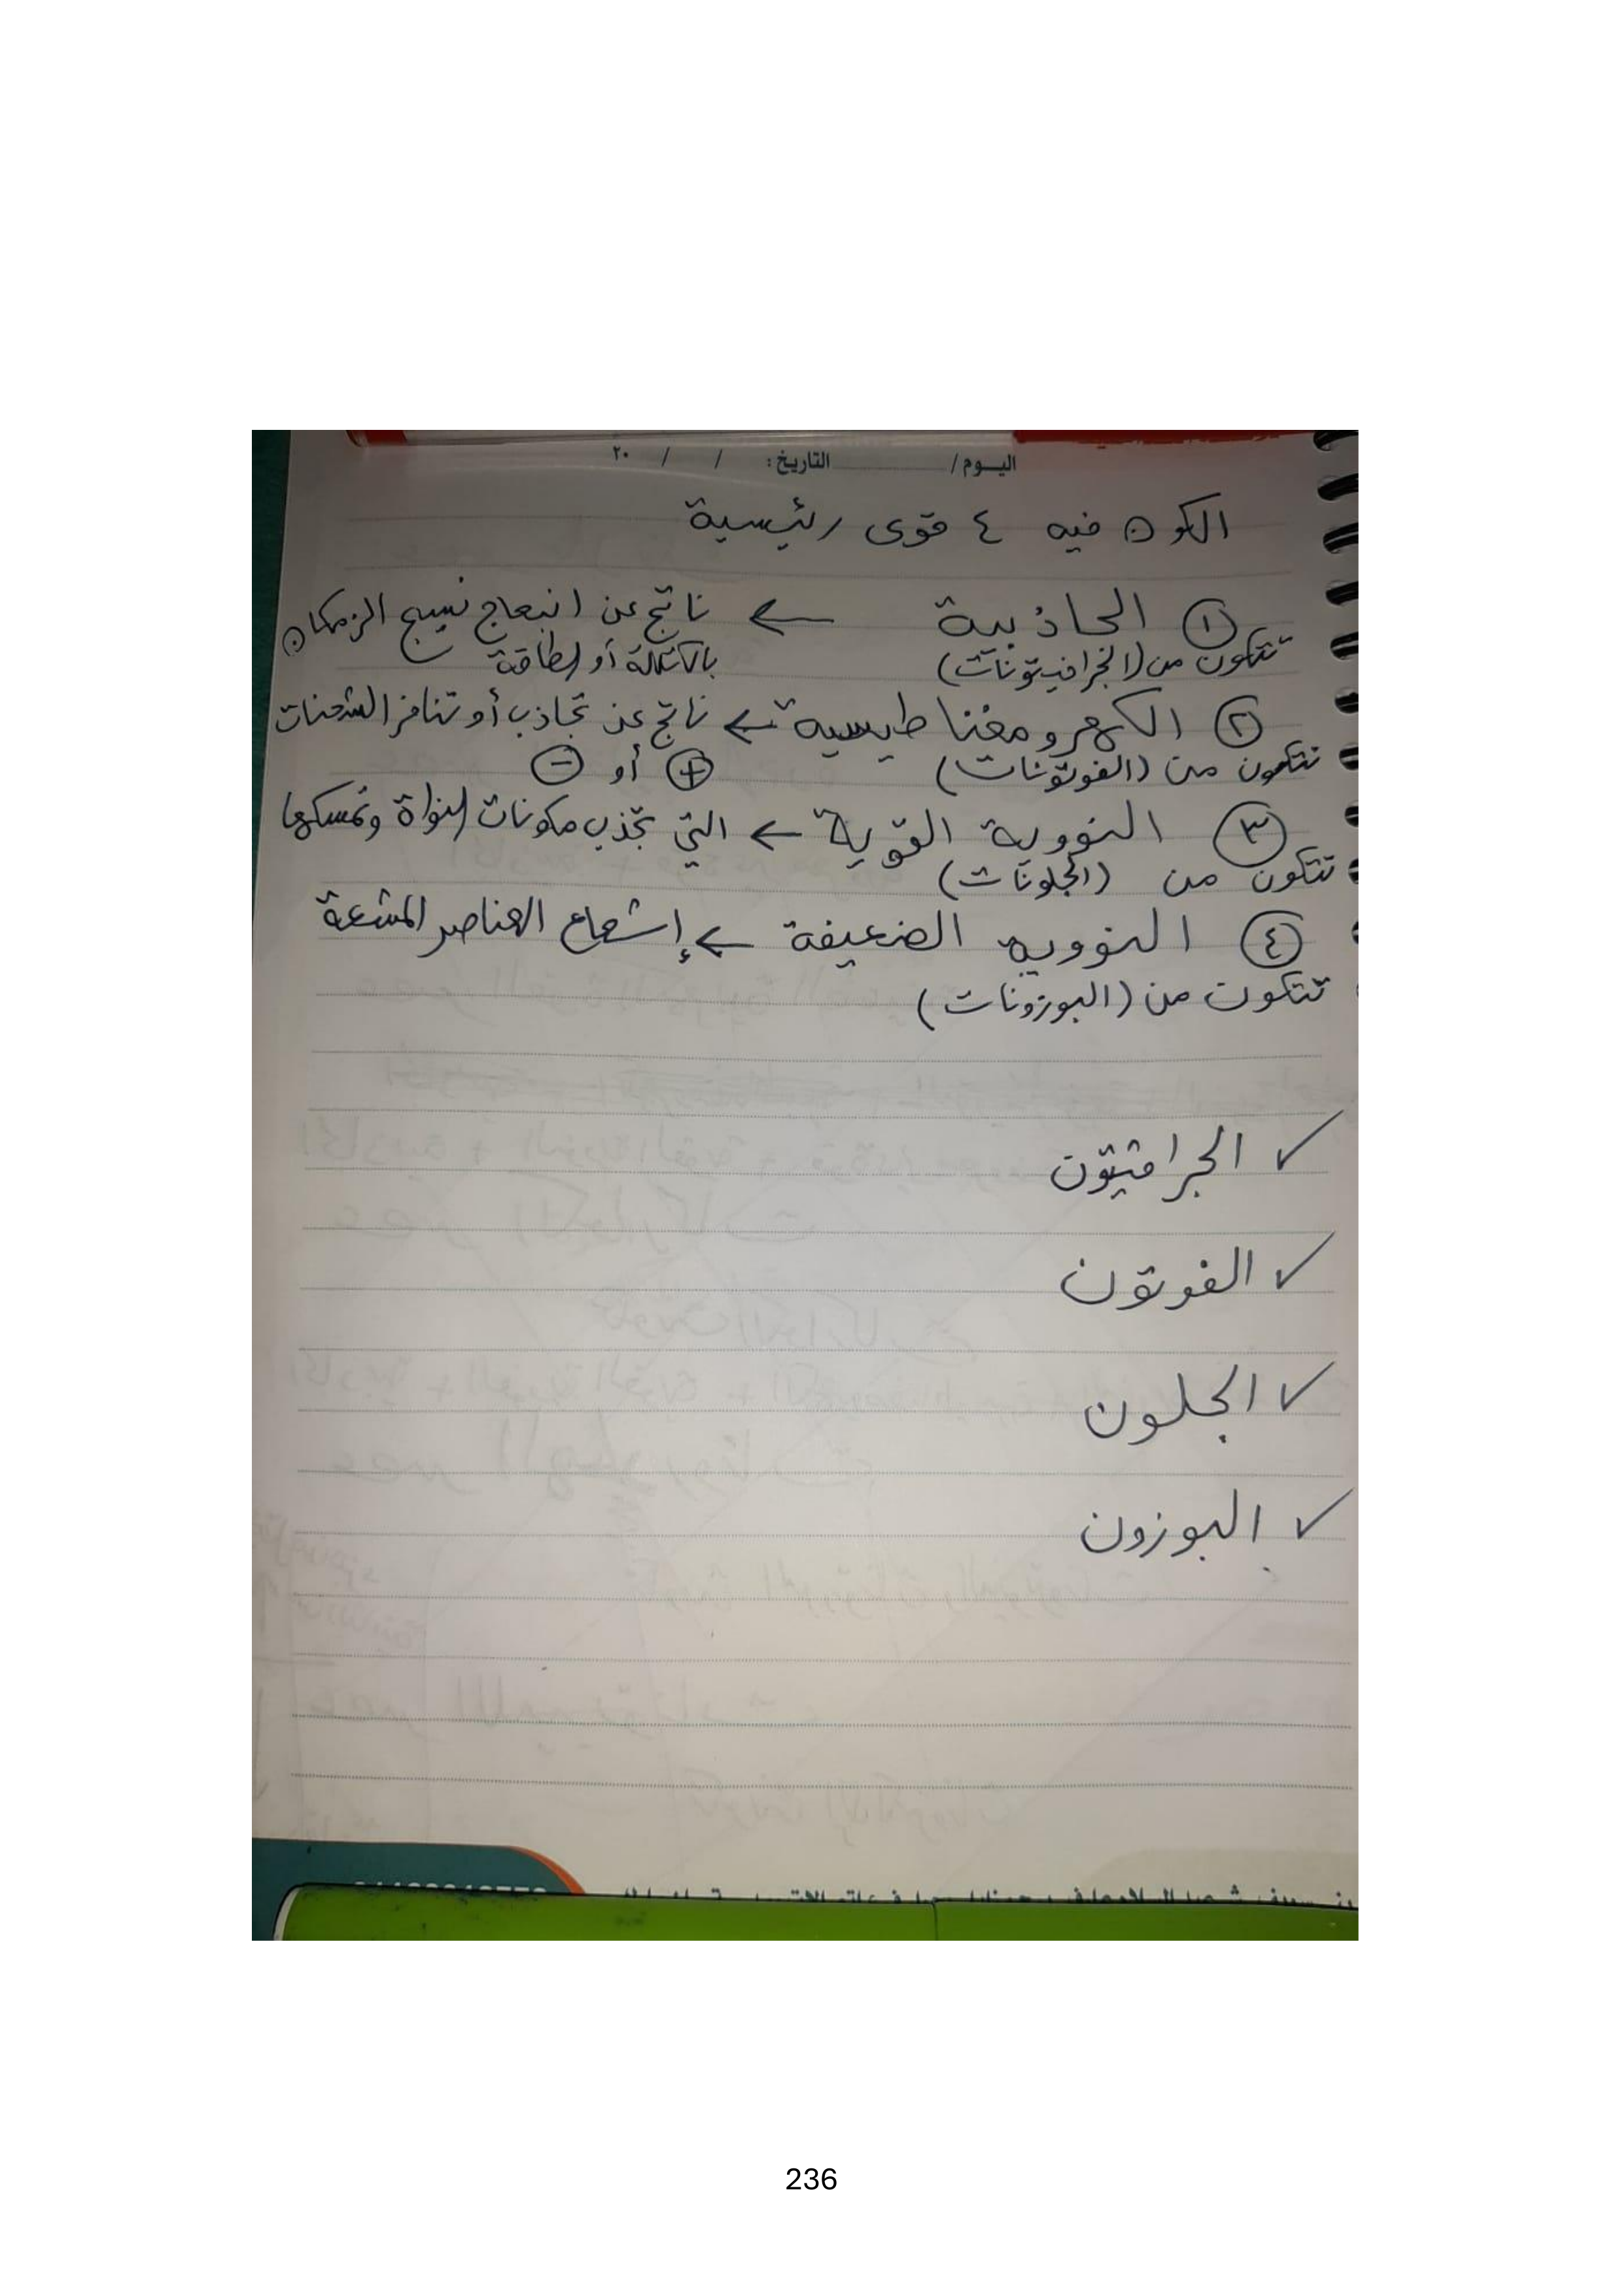 اليوم/ التاريخ: / / ٢٠
الكون فيه ٤ قوى رئيسية
١ الجاذبية ← ناتج عن انبعاج نسيج الزمكان
تتكون من (الجرافيتونات) بالكتلة أو الطاقة
٢ الكهرومغناطيسية ← ناتج عن تجاذب أو تنافر الشحنات
تتكون من (الفوتونات) + أو -
٣ النووية القوية ← التي تجذب مكونات النواة وتمسكها
تتكون من (الجلونات)
٤ النووية الضعيفة ← إشعاع العناصر المشعة
تتكون من (البوزونات)
✓ الجرافيتون
✓ الفوتون
✓ الجلون
✓ البوزون
236